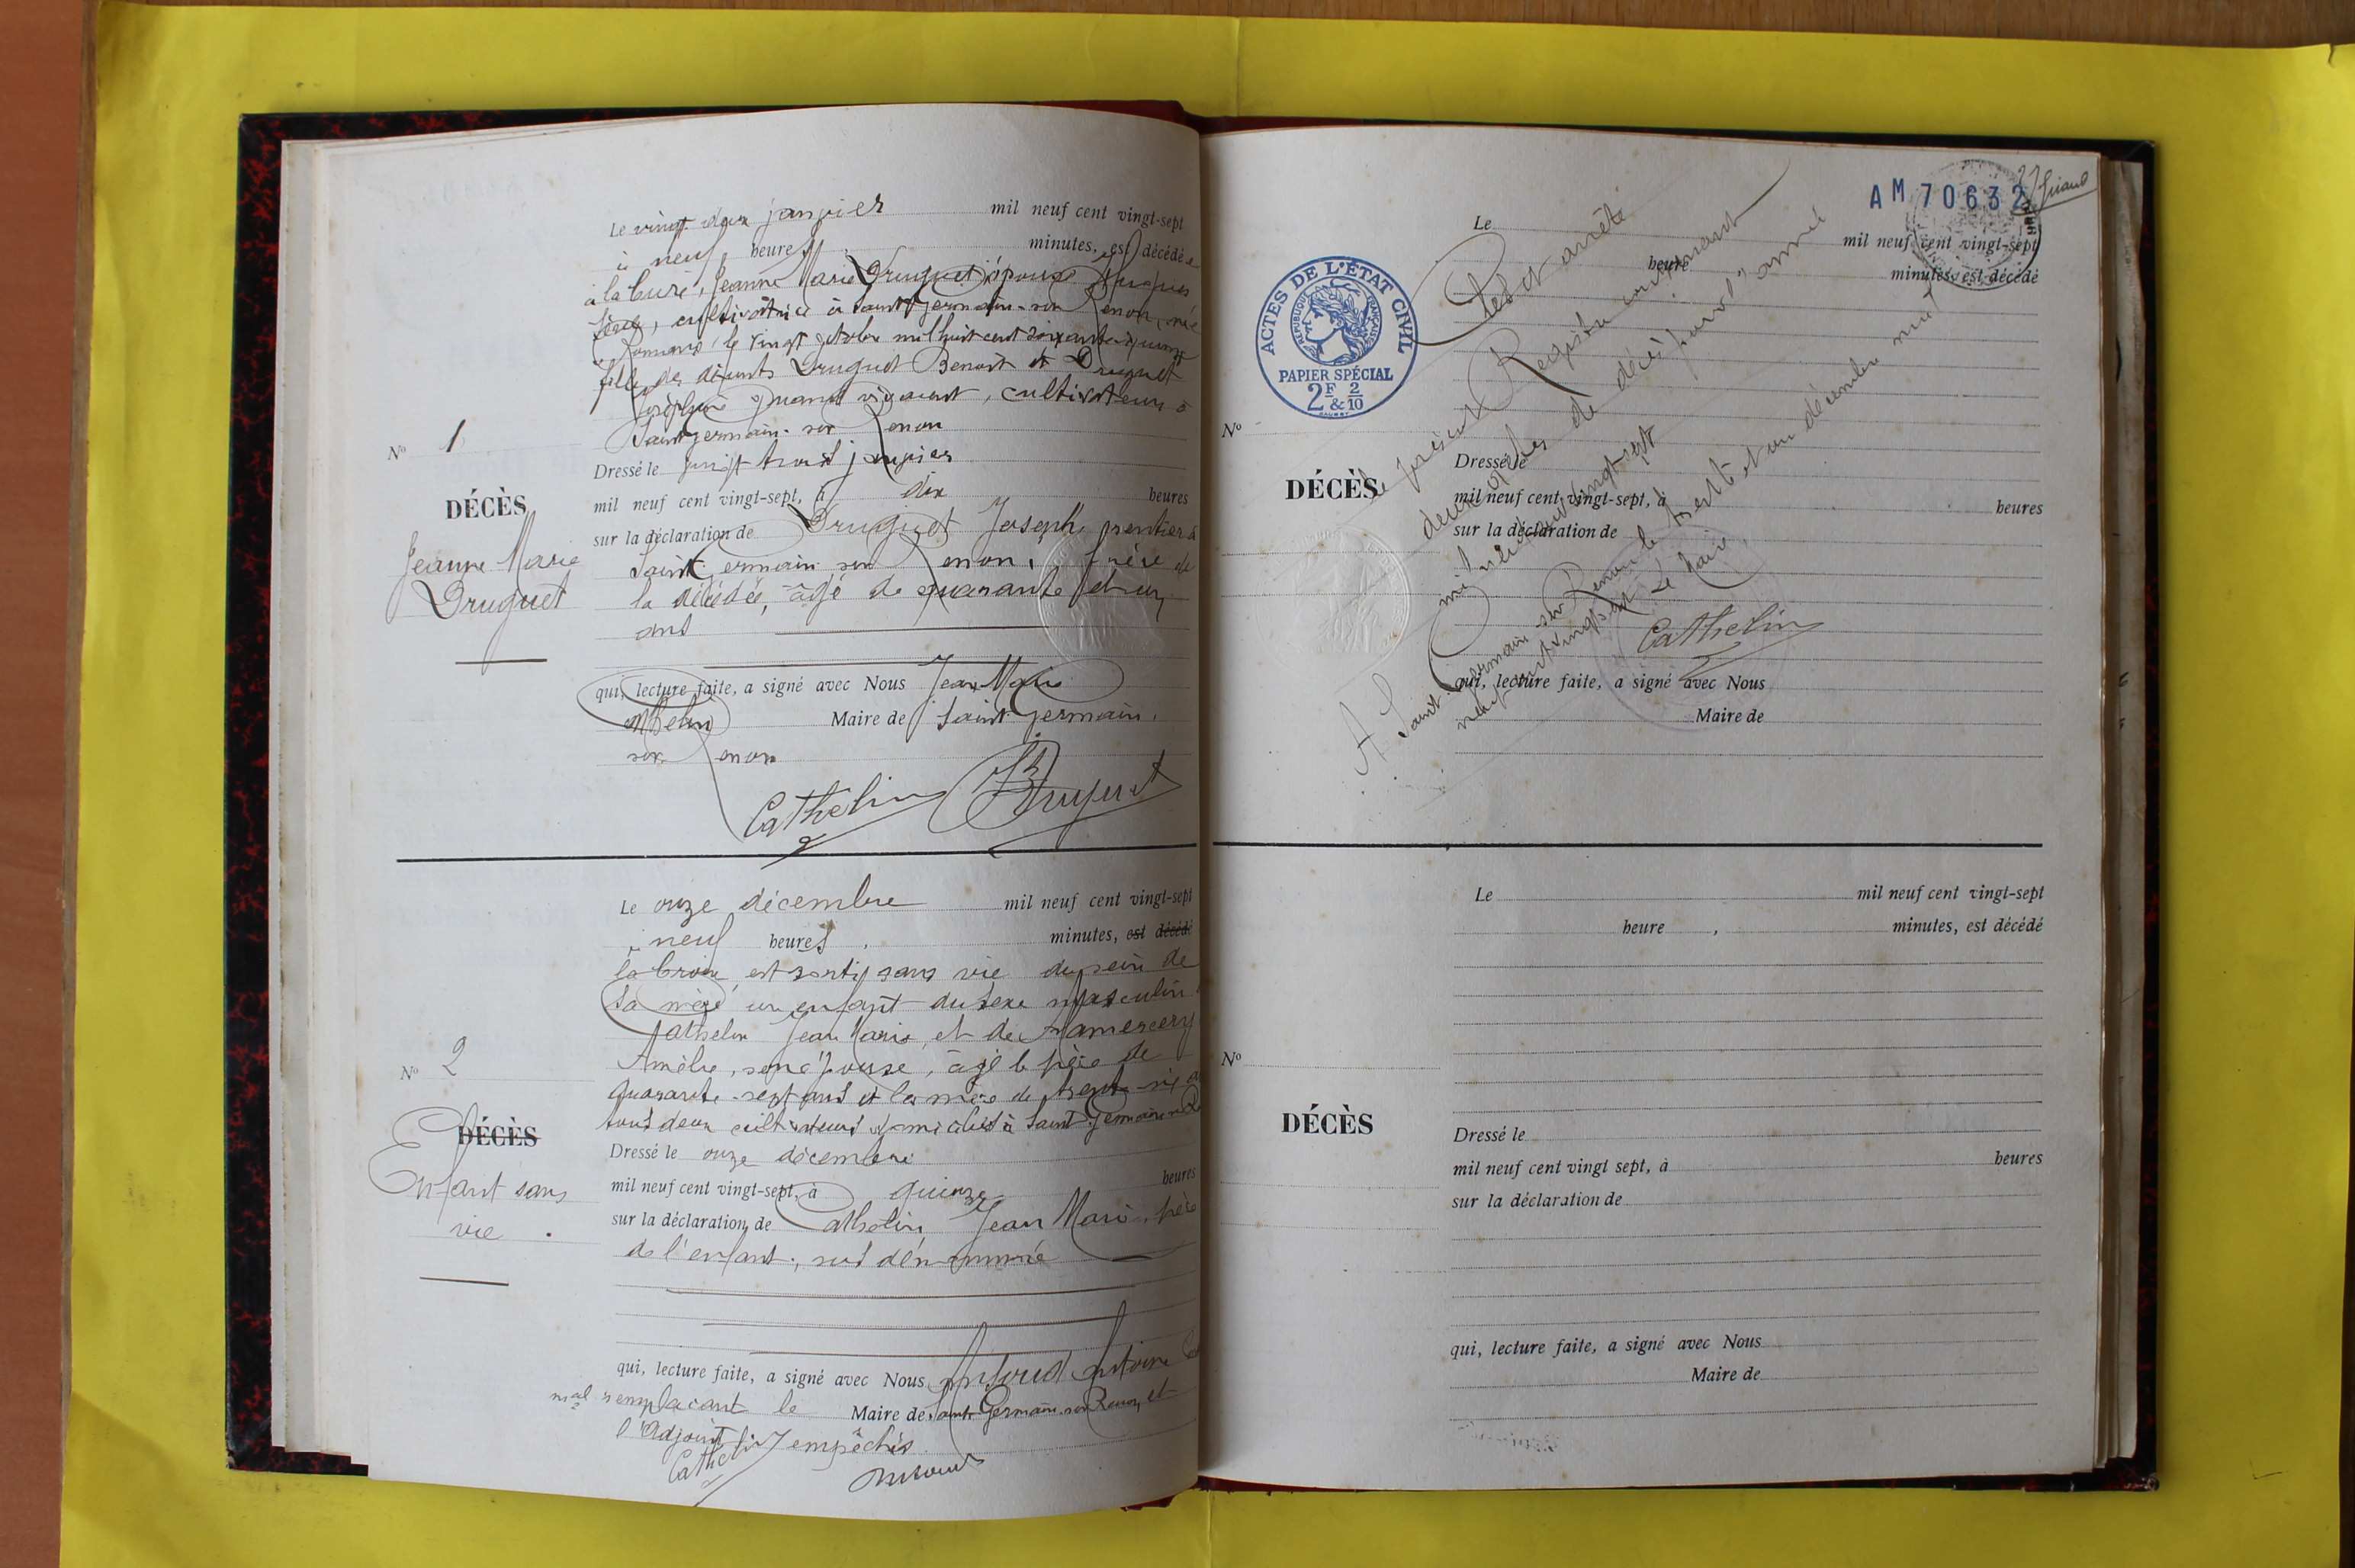 Le vingt deux janvier mil neuf cent vingt-sept
à neuf heures minutes, est décédée
à la Cure, Jeanne Marie Druguet, épouse
cultivatrice à Saint Germain-sur Renon, née
à Romans le vingt octobre mil huit cent soixante
fille des défunts Druguet Benoit et Druguet
Joséphine quand vivaient, cultivateurs à
Saint Germain-sur Renon
N° 1
DÉCÈS
Jeanne Marie
Druguet
Dressé le vingt trois janvier
mil neuf cent vingt-sept, à dix heures
sur la déclaration de Druguet Joseph, rentier à
Saint Germain sur Renon, frère de
la décédée, âgé de quarante et un
ans
qui, lecture faite, a signé avec Nous Jean Marie
Cathelin Maire de Saint Germain
sur Renon
Cathelin Druguet
Le onze décembre mil neuf cent vingt-sept
à neuf heures, minutes, est décédé
la Croix, est sorti sans vie du sein de
sa mère un enfant du sexe masculin
Cathelin Jean Marie, et de
Amélie, son épouse, âgé le père de
quarante-sept ans et la mère de trente-six
tous deux cultivateurs domiciliés à Saint Germain
N° 2
DÉCÈS
Enfant sans
vie
Dressé le onze décembre
mil neuf cent vingt-sept, à quinze heures
sur la déclaration de Cathelin Jean Marie, père
de l'enfant, sus dénommé
qui, lecture faite, a signé avec Nous Antoine
remplaçant le Maire de Saint Germain-sur Renon, et
l'Adjoint empêchés
Cathelin
AM 70632
Le mil neuf cent vingt-sept
heure minutes, est décédé
ACTES DE L'ÉTAT CIVIL
RÉPUBLIQUE FRANÇAISE
PAPIER SPÉCIAL
2F & 2/10
Clos et arrêté
le présent Registre contenant
deux actes de décès pour l'année
mil neuf cent vingt sept
A Saint-Germain sur Renon le trente et un décembre mil
neuf cent vingt sept Le Maire,
Cathelin
N°
DÉCÈS
Dressé le
mil neuf cent vingt-sept, à heures
sur la déclaration de
qui, lecture faite, a signé avec Nous
Maire de
Le mil neuf cent vingt-sept
heure , minutes, est décédé
N°
DÉCÈS
Dressé le
mil neuf cent vingt sept, à heures
sur la déclaration de
qui, lecture faite, a signé avec Nous
Maire de